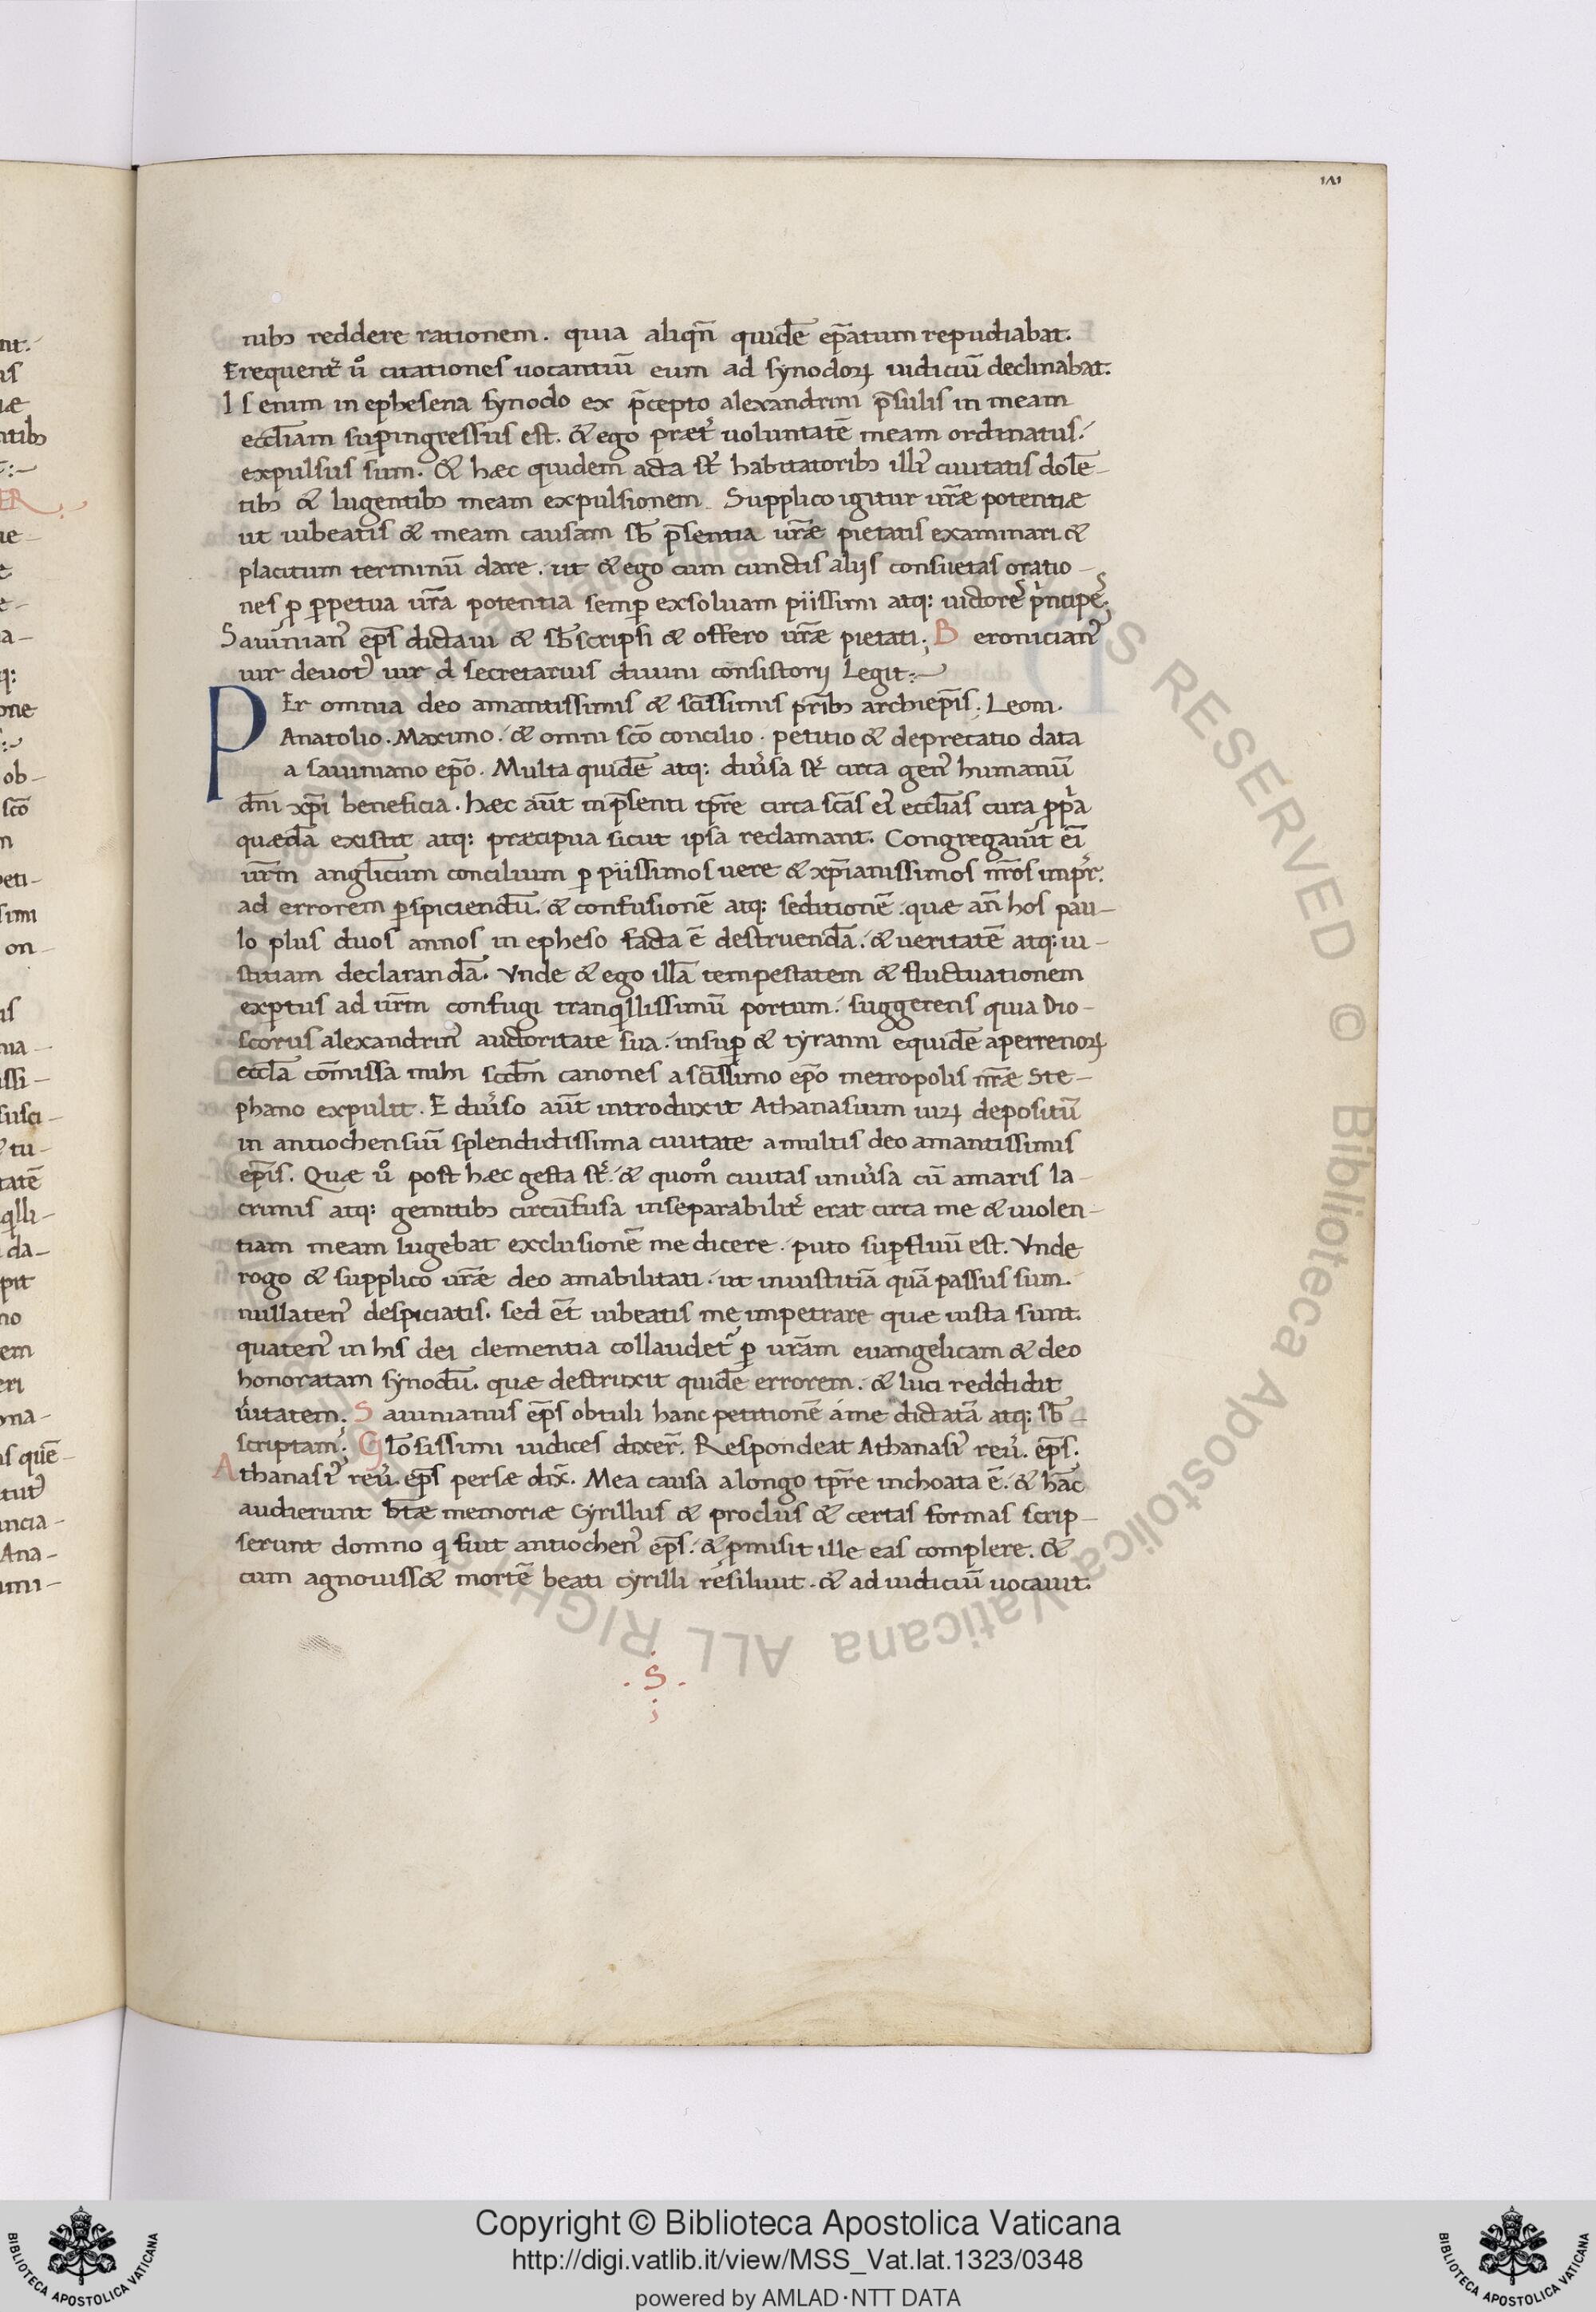 nibꝫ reddere rationem. quia aliqn̄ quidē ep̄atum repudiabat.
Frequent᷑ u̾o citationes uocantiū eum ad synodoꝝ iudiciū declinabat.
Is enim in ephesena synodo ex p̄cepto alexandrini p̄sulis in meam
eccl̄iam suꝑingressus est. & ego præt᷑ uoluntatē meam ordinatus.
expulsus sum. & hæc quidem acta st᷑ habitatoribꝫ illi᷒ ciuitatis dolē-
tibꝫ & lugentibꝫ meam expulsionem. Supplico igitur ur̄æ potentiæ
ut iubeatis & meam causam sb̄ p̄sentia ur̄æ pietatis examinari. &
placitum terminū dare. ut & ego cum cunctis alijs consuetas oratio-
nes ꝑ ꝑpetua ur̄a potentia semꝑ exsoluam piissimi atq: uictores pͥncipes.
Sauinian᷒ ep̄s dictaui & sb̄scripsi & offero ur̄æ pietati; Beronician᷒
uir deuot᷒ uir d secretarius diuini consistorij Legit:~
PEr omnia deo amantissimis & sc̄issimis pr̄ibꝫ archiep̄is. Leoni.
Anatolio. Maximo. & omni sc̄o concilio. petitio & deprecatio data
a sauiniano ep̄o. Multa quidē atq: diu᷑sa st᷑ circa gen᷒ humanū
dn̄i xp̄i beneficia. hæc aūt in p̄senti tp̄re circa sc̄as ei᷒ eccl̄ias cura ꝓpͥa
quædā existit atq: præcipua sicut ipsa reclamant. Congregauit ei̅
ur̄m angl̄icum concilium ꝑ piissimos uere & xp̄ianissimos nr̄os imp᷑r.
ad errorem ꝑspiciendū. & confusionē atq: seditionē. quæ an̄ hos pau-
lo plus duos annos in epheso facta ē destruendā. & ueritatē atq: iu-
stitiam declarandā. Vnde & ego illā tempestatem & fluctuationem
exꝑtus ad ur̄m confugi tranqͥllissimū portum. suggerens quia Dio-
scorus alexandrin᷒ auctoritate sua. insuꝑ & tyranni equidē aperrenoꝝ
eccl̄a cōmissa mihi scd̄m canones a sc̄issimo ep̄o metropolis nr̄æ Ste-
phano expulit. E diu᷑so aūt introduxit Athanasium uiꝝ depositū
in antiochensiū splendidissima ciuitate a multis deo amantissimis
ep̄is. Quæ u̾o post hæc gesta st᷑. & quom̊ ciuitas uniu᷑sa cū amaris la-
crimis atq: gemitibꝫ circūfusa inseparabilit᷑ erat circa me & uiolen-
tiam meam lugebat exclusionē me dicere. puto suꝑfluū est. Vnde
rogo & supplico ur̄æ deo amabilitati. ut iniustitiā quā passus sum.
nullaten᷒ despiciatis. sed ēt iubeatis me impetrare quæ iusta sunt.
quaten᷒ in his dei clementia collaudet᷑ ꝑ ur̄am euangelicam & deo
honoratam synodū. quæ destruxit quidē errorem. & luci reddidit
u᷑itatem. Sauinianus ep̄s obtuli hanc petitionē á me dictatā atq: sb̄-
scriptam. Glōsissimi iudices dixer̄. Respondeat Athanasi᷒ reu᷑. ep̄s.
Athanasi᷒ reu᷑. ep̄s persæ dix̄. Mea causa a longo tp̄re inchoata ē. & hāc
audierunt bt̄æ memoriæ Cyrillus & proclus & certas formas scrip-
serunt domno qͥ fuit antiochen᷒ ep̄s. & ꝓmisit ille eas complere. &
cum agnouiss& mortē beati cyrilli résiliuit. & ad iudiciū uocauit.
. S .
Copyright © Biblioteca Apostolica Vaticana
http://digi.vatlib.it/view/MSS_Vat.lat.1323/0348
powered by AMLAD·NTT DATA
BIBLIOTECA APOSTOLICA VATICANA
BIBLIOTECA APOSTOLICA VATICANA
© Biblioteca Apostolica Vaticana ALL RIGHTS RESERVED